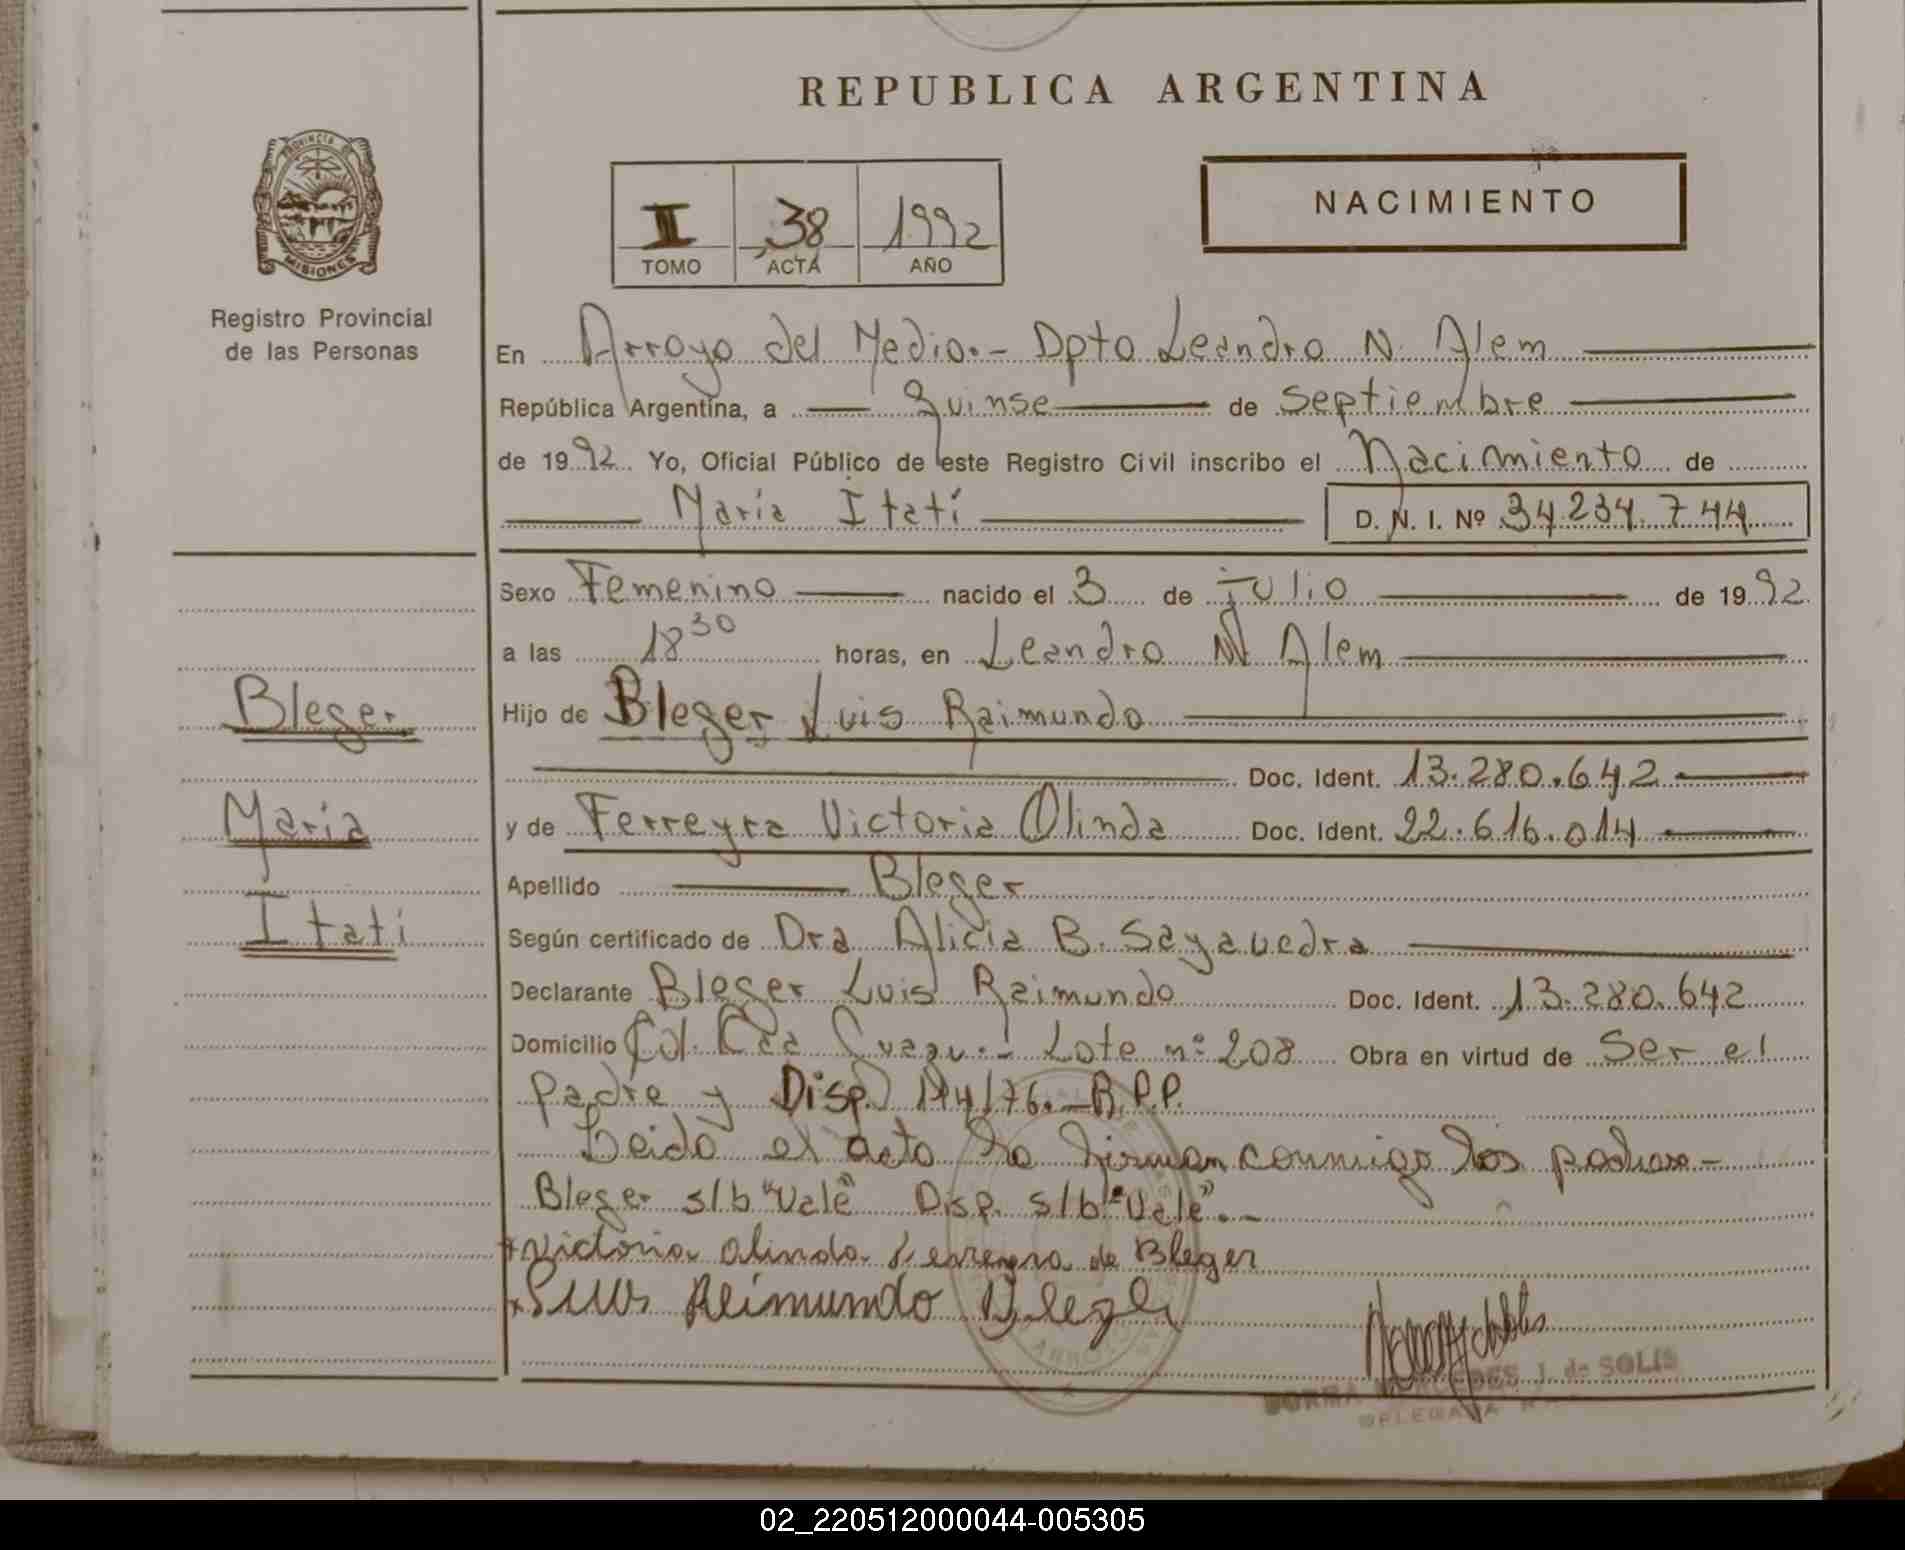 REPUBLICA ARGENTINA
PROVINCIA DE
MISIONES
Registro Provincial
de las Personas
II 38 1992
TOMO ACTA AÑO
NACIMIENTO
En Arroyo del Medio.- Dpto Leandro N. Alem
República Argentina, a Quinse de Septiembre
de 1992. Yo, Oficial Público de este Registro Civil inscribo el Nacimiento de
María Itatí D. N. I. Nº 34.234.744
Sexo Femenino nacido el 3 de julio de 1992
a las 18 30 horas, en Leandro N Alem
Bleger
Hijo de Bleger Luis Raimundo
Doc. Ident. 13.280.642
María
y de Ferreyra Victoria Olinda Doc. Ident. 22.616.014
Apellido Bleger
Itatí
Según certificado de Dra Alicia B. Sayavedra
Declarante Bleger Luis Raimundo Doc. Ident. 13.280.642
Domicilio Col. Caa Lote nº 208 Obra en virtud de Ser el
padre y Disp. 194/76.- R.P.P.
Leido el acto lo firman conmigo los padres-
Bleger s/b "Vale" Disp. s/b "Vale".-
Victoria Olinda Ferreyra de Bleger
Luis Reimundo Bleger
NORMA MERCEDES J. de SOLIS
DELEGADA
02_220512000044-005305